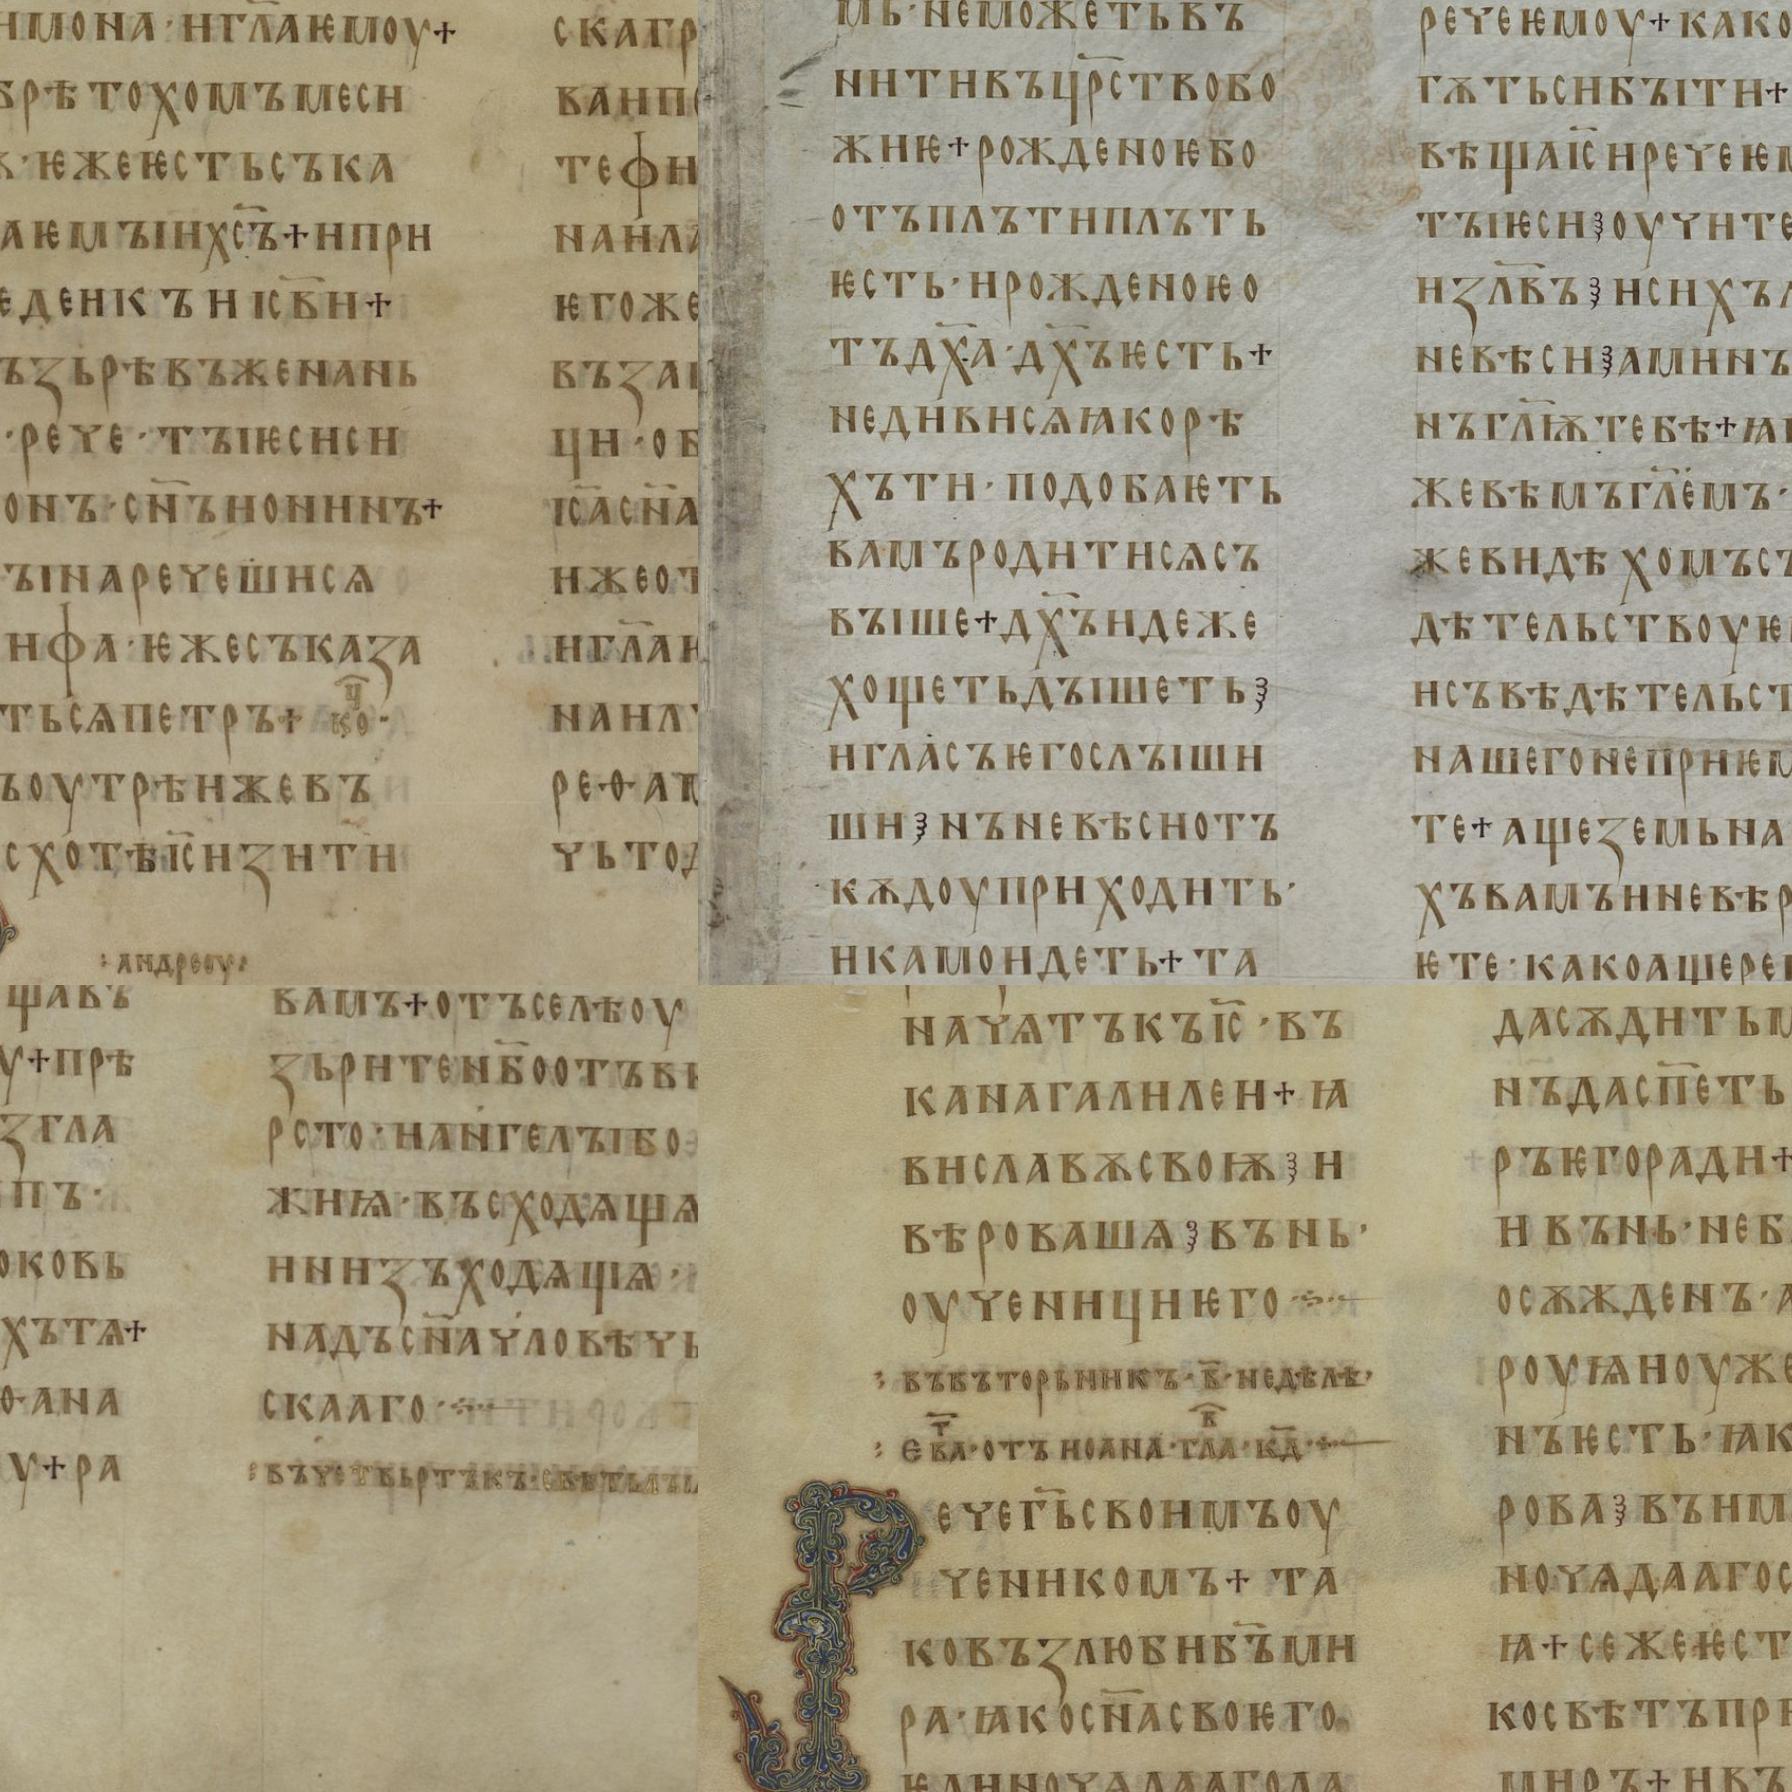 имона · иг҃лаѥмоу+
брѣтохомъмеси
ѥжеѥстьсъка
аѥмꙑих҃съ+ипри
едеикъніс҃ви+
ъзьрѣвъженань
· рече · тꙑѥсиси
онъ · сн҃ъиониинъ+
ꙑнаречешисѧ
ифа · ѥжесъказа
тьсѧпетръ+ ко҃ц ·
ъоутрѣижевъ
схотѣіс҃изити
: андреоу :
скагр
ванпо
тефи
наила
ѥгоже
въза
ци · об
іс҃асн҃а
ижеот
иг҃лаѥ
наил
реѳа
чьтод
мь · неможетьвъ
нитивъцр҃ствобо
жиѥ+рожденоѥбо
отъплътиплъть
ѥсть · ирожденоѥо
тъдх҃а · дх҃ъѥсть+
недивисѧꙗкорѣ
хъти · подобаѥть
вамъродитисѧсъ
вꙑше+дх҃ъидеже
хощетьдꙑшеть
игласъѥгослꙑши
ши нъневѣсиотъ
кѫдоуприходить ·
икамоидеть+ та
речеѥмоу+како
гѫтьсибꙑти+
вѣщаіс҃иречеѥм
тꙑѥси оучите
изл҃въ исихъ
невѣси амин
нъгл҃ѭтебѣ+ꙗ
жевѣмъгл҃ѥмъ ·
жевидѣхомъсъ
дѣтельствоуѥ
исъвѣдѣтельст
нашегонеприѥм
те+ ащеземьна
хъвамъиневѣр
ѥте · какоащере
щавъ
у+прѣ
згла
пъ ·
оковь
хътѧ+
ѳана
у+ра
вамъ+отъселѣоу
зьритенб҃оотъвь
рсто · иангелꙑбо
жиѩ · въсходѧщѧ
ининзъходѧщѧ ·
надъсн҃ачловѣчь
скааго ·
: въчетвьртъкъ · свѣтьлꙑ
начѧтъкъіс҃ · въ
канагалилеи+ ꙗ
виславѫсвоѭ и
вѣровашѧ вънь ·
оученициѥго
: въвъторьникъ · в҃ · недѣлѣ ·
: ева · отъ иоана · гла · кд҃ · +
ечегь҃своимъоу
ченикомъ+ та
ковъзлюбибъ҃ми
ра · ꙗкосн҃асвоѥго
ѥдиночѧдаагода
дасѫдитьм
нъдасп҃еть
ръѥгоради+
и вънь · неб
осѫжденъ · 
роуѩиоуже
нъѥсть · ꙗк
рова вънм
ночѧдаагос
ꙗ+сежеѥст
косвѣтъпри
миръ+ нвъ